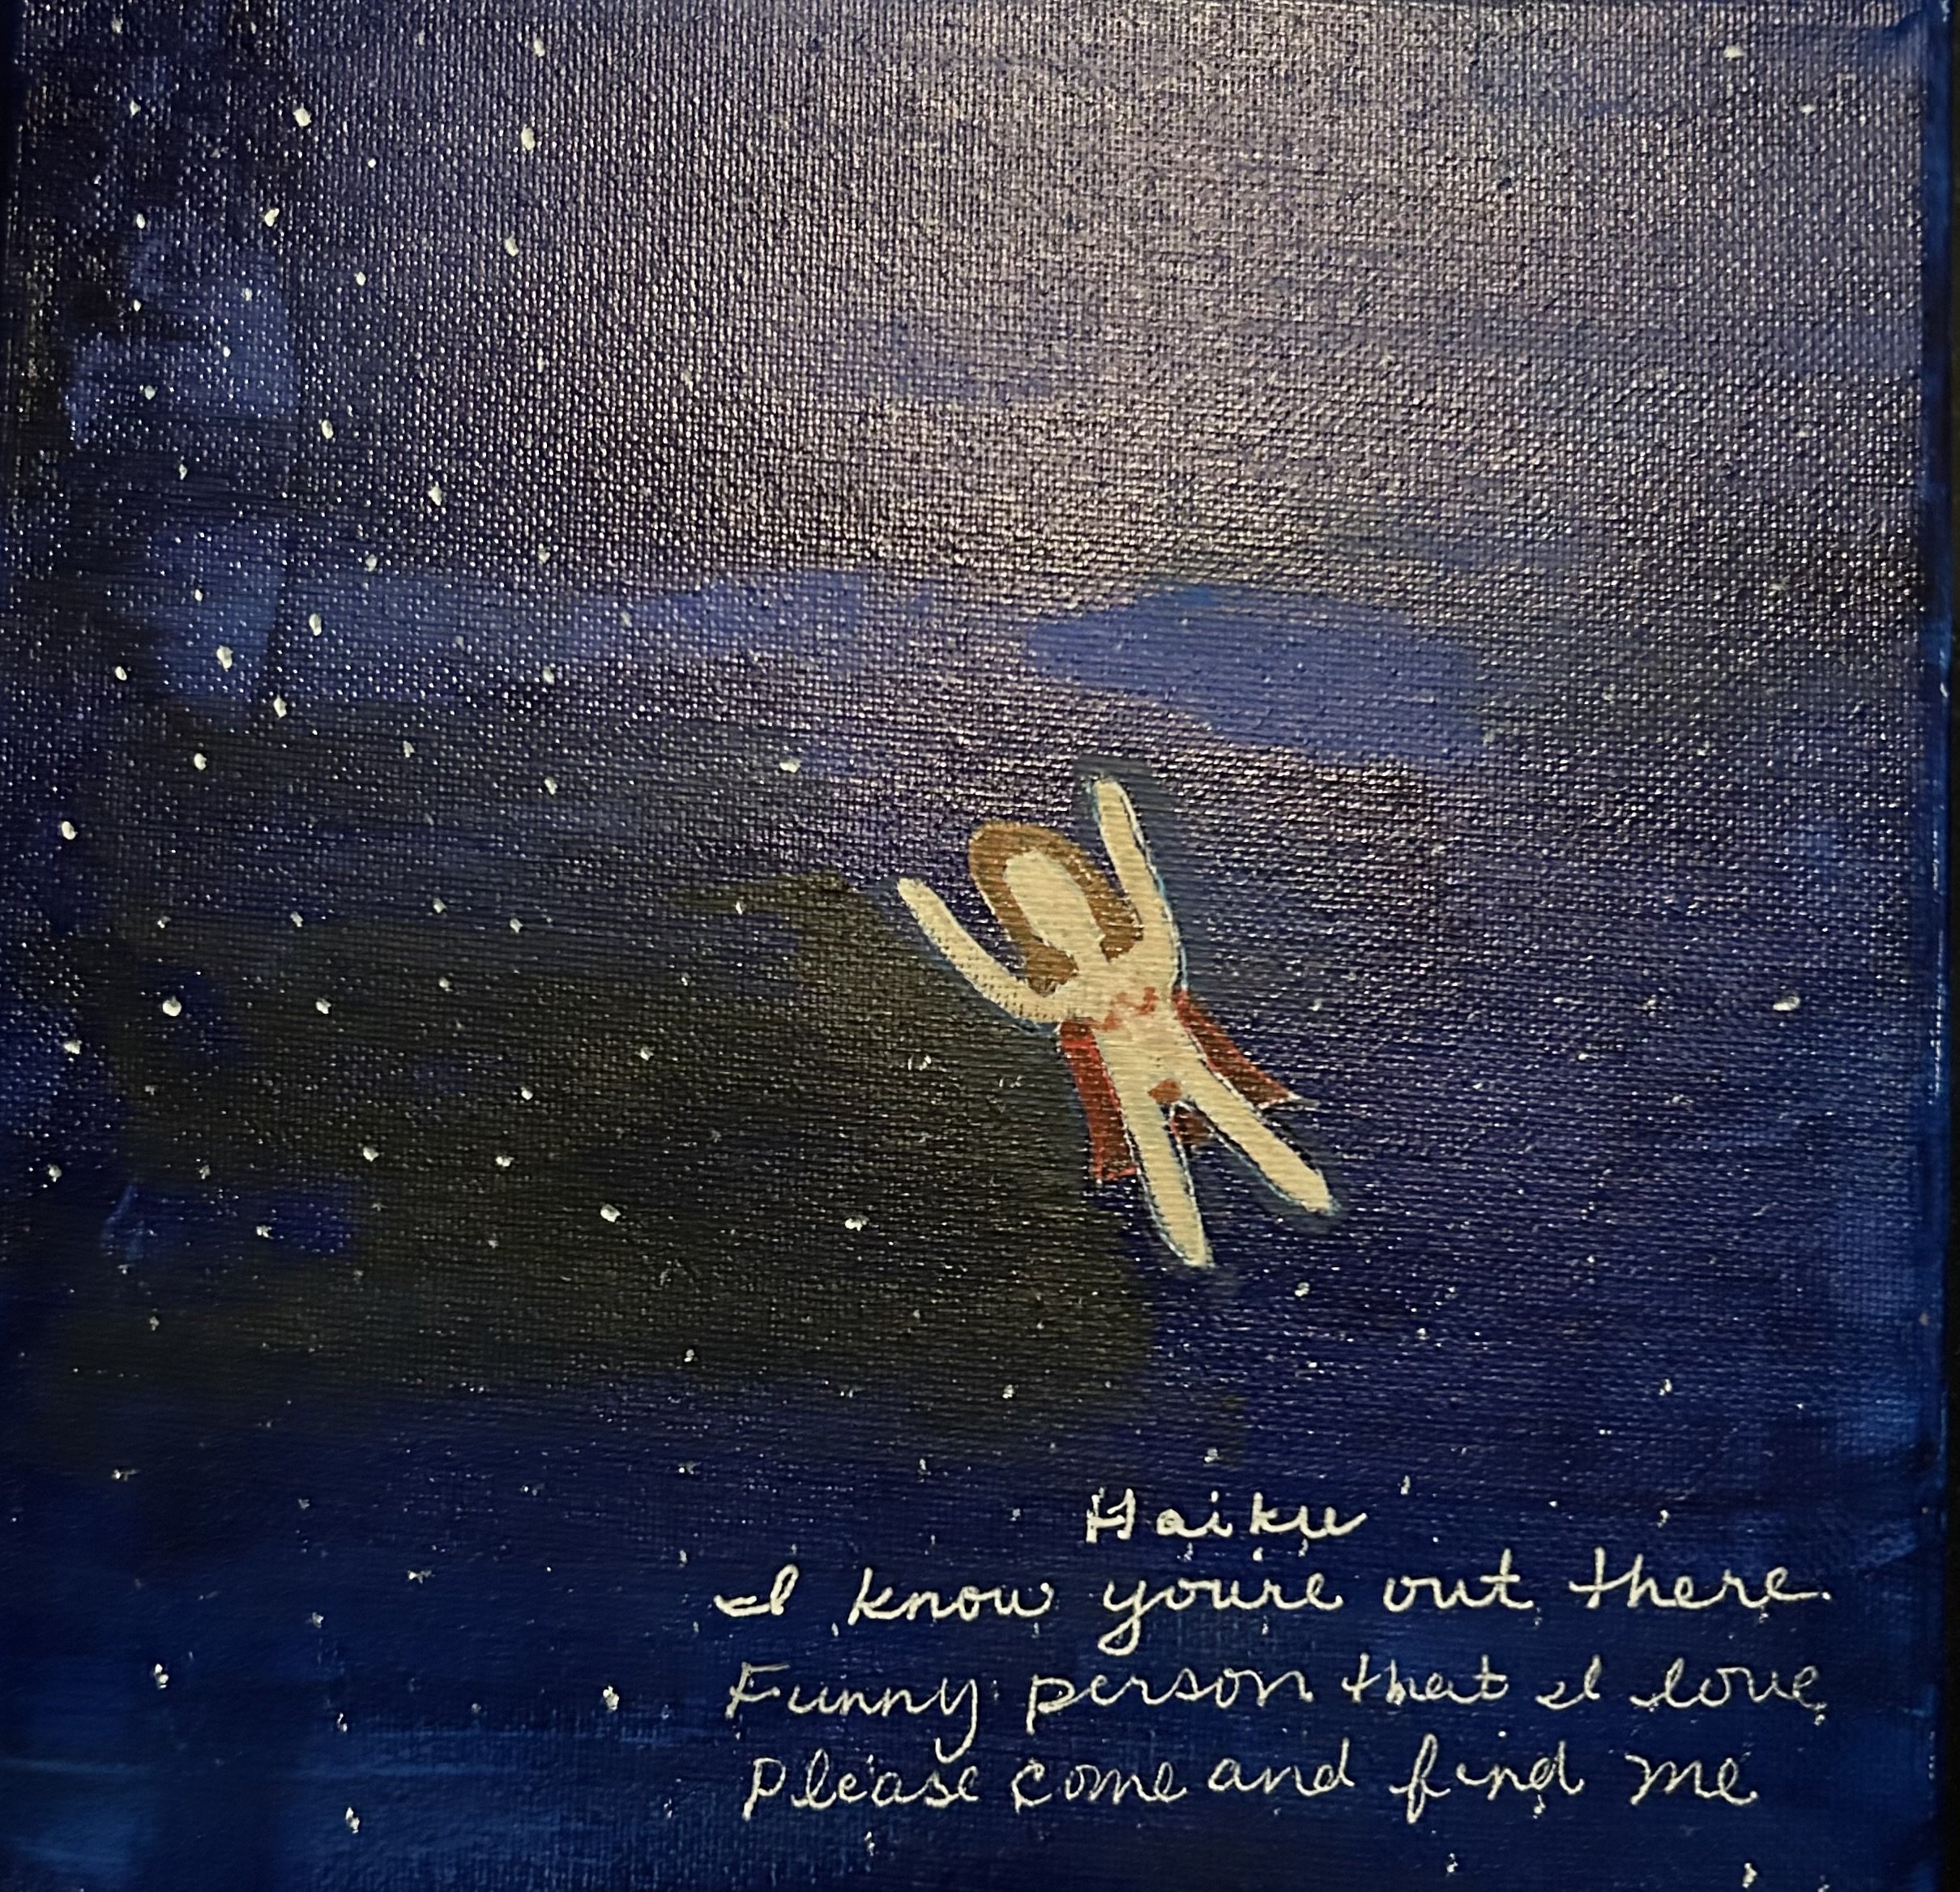 Haiku
I know you're out there.
Funny person that I love
Please come and find me